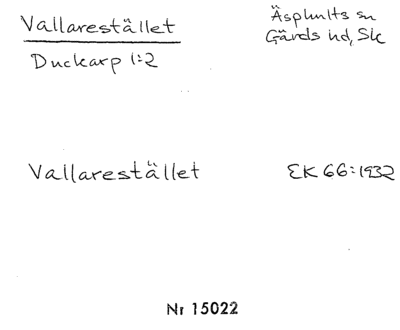 Vallarestället
Äsphults sn
Gärds hd, Sk
Duckarp 1:2
Vallarestället
EK 66:1932
Nr 15022